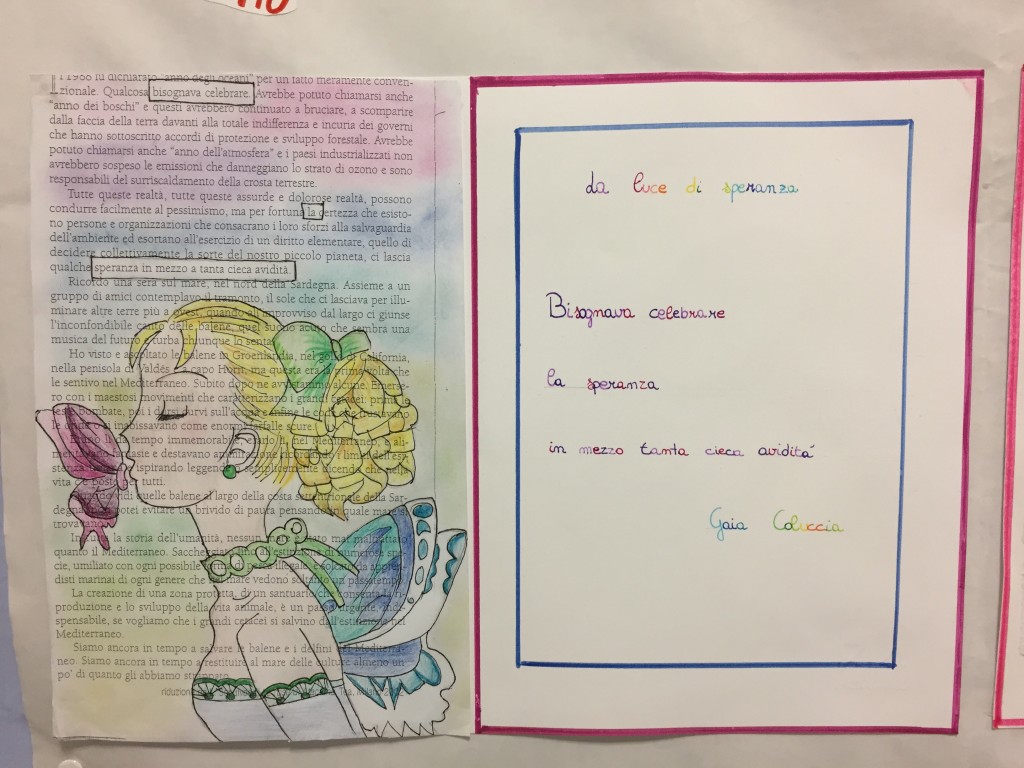 I 1988 fu dichiarato "anno degli oceani" per un fatto meramente conven-
zionale. Qualcosa bisognava celebrare. Avrebbe potuto chiamarsi anche
"anno dei boschi" e questi avrebbero continuato a bruciare, a scomparire
dalla faccia della terra davanti alla totale indifferenza e incuria dei governi
che hanno sottoscritto accordi di protezione e sviluppo forestale. Avrebbe
potuto chiamarsi anche "anno dell'atmosfera" e i paesi industrializzati non
avrebbero sospeso le emissioni che danneggiano lo strato di ozono e sono
responsabili del surriscaldamento della crosta terrestre.
Tutte queste realtà, tutte queste assurde e dolorose realtà, possono
condurre facilmente al pessimismo, ma per fortuna la certezza che esisto-
no persone e organizzazioni che consacrano i loro sforzi alla salvaguardia
dell'ambiente ed esortano all'esercizio di un diritto elementare, quello di
decidere collettivamente la sorte del nostro piccolo pianeta, ci lascia
qualche speranza in mezzo a tanta cieca avidità.
Ricordo una sera sul mare, nel nord della Sardegna. Assieme a un
gruppo di amici contemplavo il tramonto, il sole che ci lasciava per illu-
minare altre terre più a ovest, quando all'improvviso dal largo ci giunse
l'inconfondibile canto delle balene, quel suono acuto che sembra una
musica del futuro e turba chiunque lo senta.
Ho visto e ascoltato le balene in Groenlandia, nel golfo di California,
nella penisola di Valdés e a capo Horn, ma questa era la prima volta che
le sentivo nel Mediterraneo. Subito dopo ne avvistammo alcune. Emerse-
ro con i maestosi movimenti che caratterizzano i grandi cetacei: prima le
teste bombate, poi i dorsi curvi sull'acqua e infine le code che frustavano
le onde o si inabissavano come enormi farfalle scure.
Erano lì da tempo immemorabile, erano lì, nel Mediterraneo, e ali-
mentavano fantasie e destavano ammirazione
ispirando leggende o semplicemente dicendo che nella
vita c'è posto per tutti.
Quando vidi quelle balene al largo della costa settentrionale della Sar-
degna, non potei evitare un brivido di paura pensando in quale mare si
trovavano.
In tutta la storia dell'umanità, nessun mare è stato mai maltrattato
quanto il Mediterraneo. Saccheggiato fino all'estinzione di numerose spe-
cie, umiliato con ogni possibile forma di pesca illegale, e solcato da appren-
disti marinai di ogni genere che nel mare vedono soltanto un passatempo.
La creazione di una zona protetta, di un santuario che consenta la ri-
produzione e lo sviluppo della vita animale, è un passo urgente, indi-
spensabile, se vogliamo che i grandi cetacei si salvino dall'estinzione nel
Mediterraneo.
Siamo ancora in tempo a salvare le balene e i delfini del Mediterra-
neo. Siamo ancora in tempo a restituire al mare delle culture almeno un
po' di quanto gli abbiamo strappato.
riduzione Tea, Milano
La luce di speranza
Bisognava celebrare
la speranza
in mezzo tanta cieca avidità
Gaia Coluccia